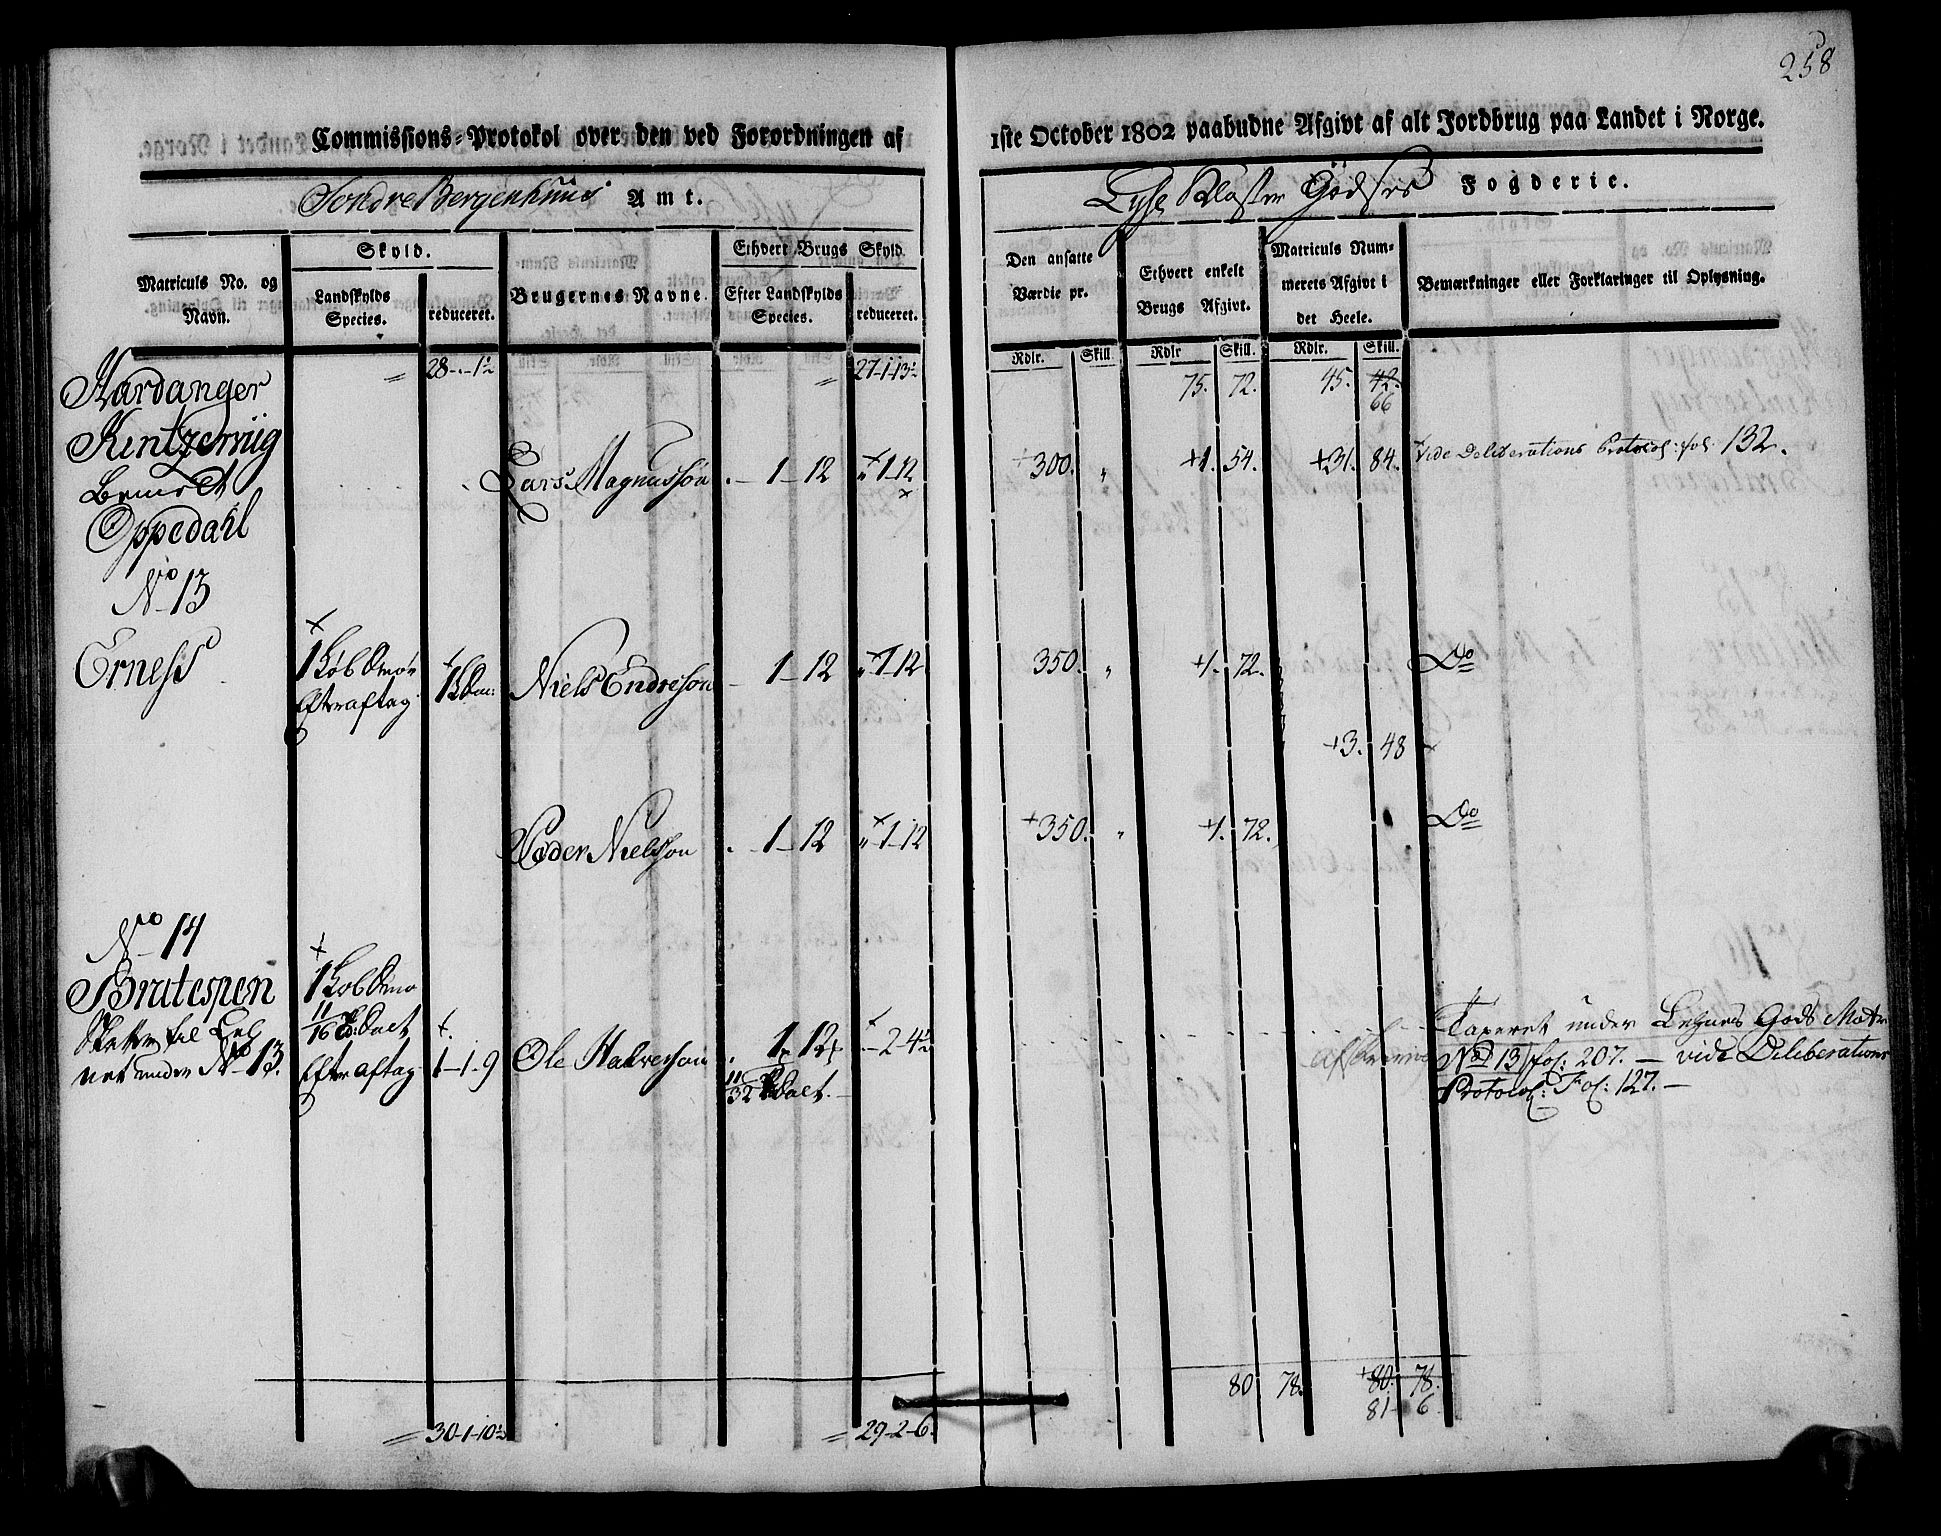 258
Commissions-Protokol over den ved Forordningen af 1ste October 1802 paabudne Afgivt af alt Jordbrug paa Landet i Norge.
Søndre Bergenhuus Amt. Lyse Kloster Godses Fogderie.
Matriculs No. og Navn.
Skyld.
Landskylds Species.
reduceret.
Brugernes Navne.
Ethvert Brugs Skyld.
Efter Landskylds Species.
reduceret.
Den ansatte Værdie pr.
Rdlr. Skill.
Ethvert enkelt Brugs Afgivt.
Rdlr Skill.
Matriculs Nummerets Afgivt i det Heele.
Rdlr. Skill.
Bemærkninger eller Forklaringer til Oplysning.
Hardanger = 28-.-1½ = 27-1-13½ 75. 72. 45. 42.
66
Kintzervig
Lars Magnussøn .-1-12 "-1-12 300. " +1. 54. +31. 84. Vide Deliberations Protocol: fol: 132.
Oppedahl
No 13
Erness 1 Løb Smør Niels Endresøn -1-12 "-1-12 350. " +1. 72. Do
Efter aftag
+3. 48
Peder Nielssøn .-1-12 "-1-12 +350. " +1. 72. Do
No 14
Brutespen 1 Løb Smør
11/16
under No 13. Efter aftag 1-1-9 Ole Halversøn . 1-12 -2-4½
11/32
Taxeret under Legnes Gods Matr
No 13 fol: 207. — vide Deliberations
Protocol: Fol: 127. —
80 78. +80. 78.
81- 6
= 30-1-10½ = 29-2-6.